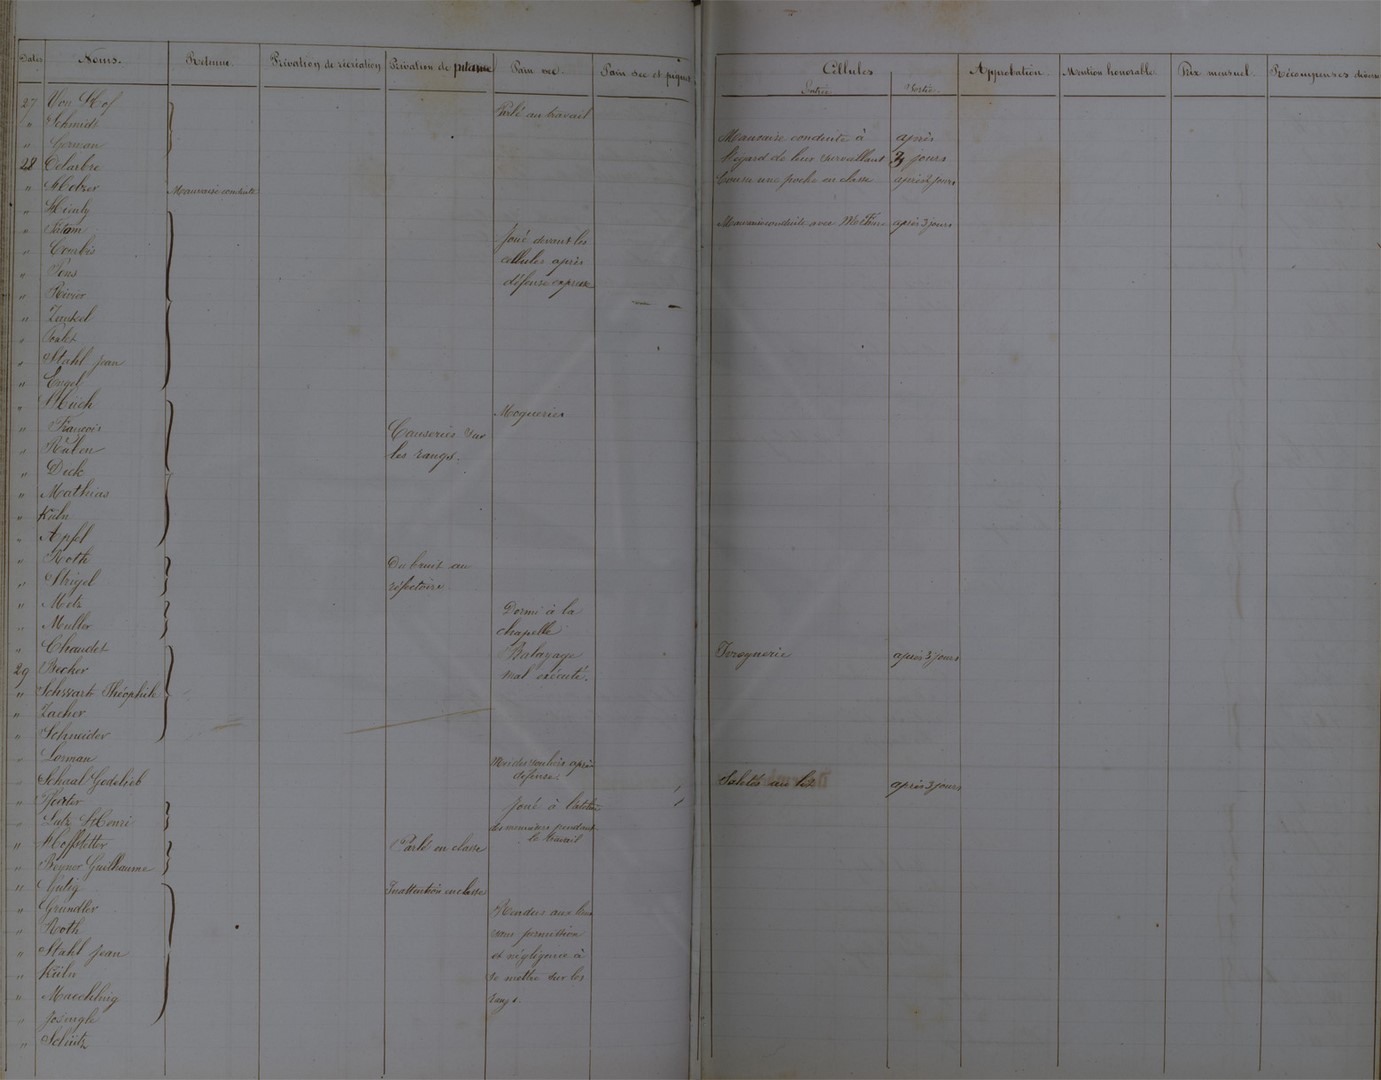 Dates Noms. Retenue Privation de récréation Privation de pitance Pain sec Pain sec et piquet Cellules Approbation Mention honorable Prix mensuel Récompenses diverses
Entrée Sortie
27 Von Hof Parlé au travail
" Schmidt Mauvaise conduite à après
" German l'égard de leur surveillant 3 jours
28 Delarbre après 2 jours
" Metzer Mauvaise conduite
" Heinly Mauvaise conduite avec après 3 jours
" Fatam Joué devant les
" Combis cellules après
" Pons défense expresse
" Rivier
"
"
" Stahl Jean
" Engel
" Moqueries
" François Causeries sur
" les rangs.
" Deck
" Mathias
" Küln
" Apfel
" Roth Du bruit au
" Strigel réfectoire
" Metz Dormi à la
" Muller chapelle
" Chaudet Balayage Ivrognerie après 3 jours
29 Becher mal exécuté.
" Schwartz Théophile
" Zacher
" Schneider
" Lorman Mis des souliers après
" Schaal Godelieb défense. Saletés au lit après 3 jours
" Joué à l'atelier
" Lutz Henri des pendant
" Hoffstetter Parlé en classe le travail
" Beyner Guillaume
" Gutig Inattention en classe
" Grundler Rendus aux
" Roth sans permission
" Stahl Jean et négligence à
" Küln se mettre sur les
" Maechling rangs
" Josingle
" Schütz